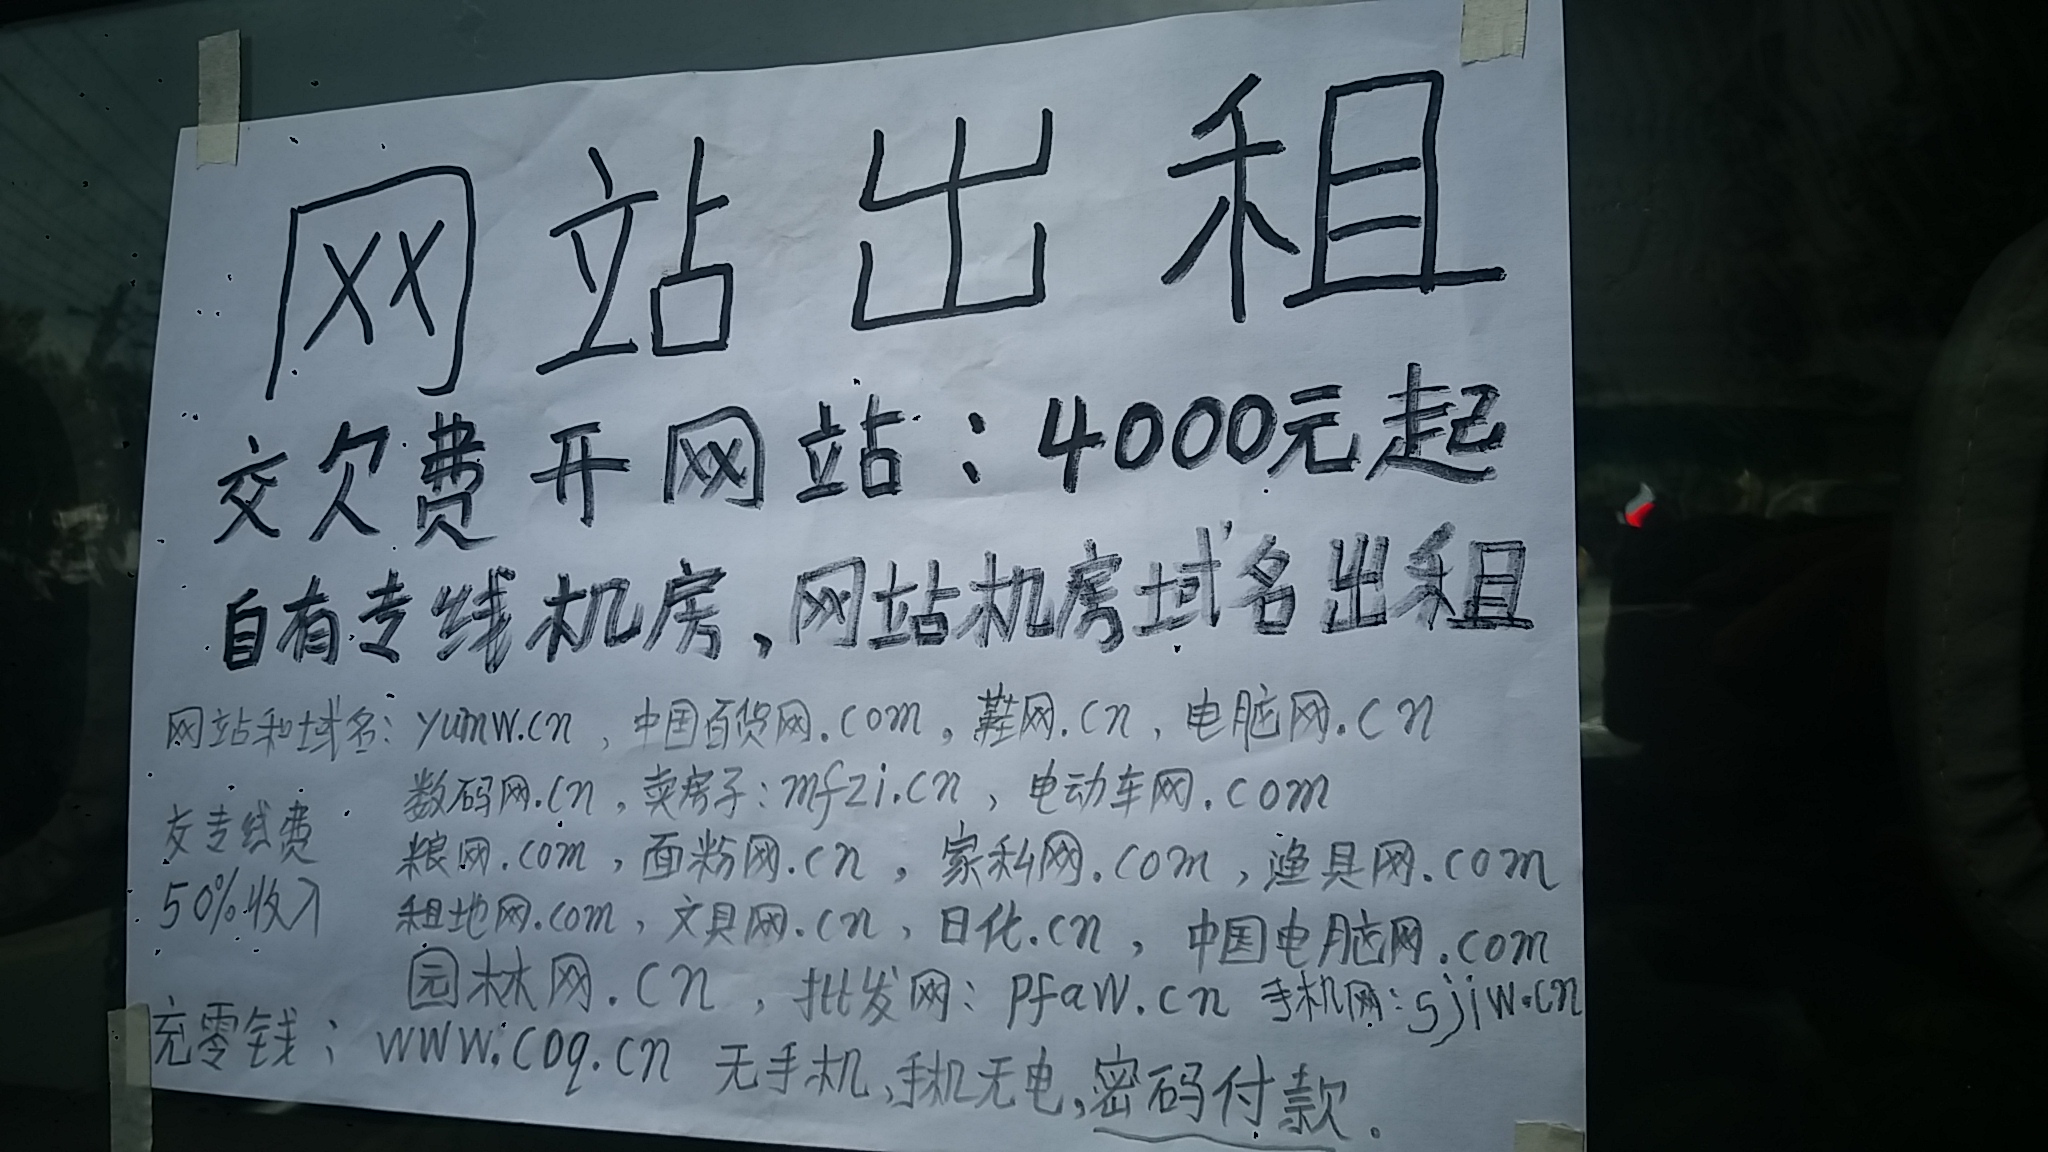 网站出租
交欠费开网站：4000元起
自有专线机房、网站机房域名出租
网站和域名：yumw.cn，中国百货网.com，鞋网.cn，电脑网.cn
数码网.cn，卖房子：mfzi.cn，电动车网.com
交专线费
粮网.com，面粉网.cn，家私网.com，渔具网.com
50%收入
租地网.com，文具网.cn，日化.cn，中国电脑网.com
园林网.cn，批发网：pfaw.cn 手机网：sjiw.cn
充零钱：www.coq.cn 无手机、手机无电，密码付款．